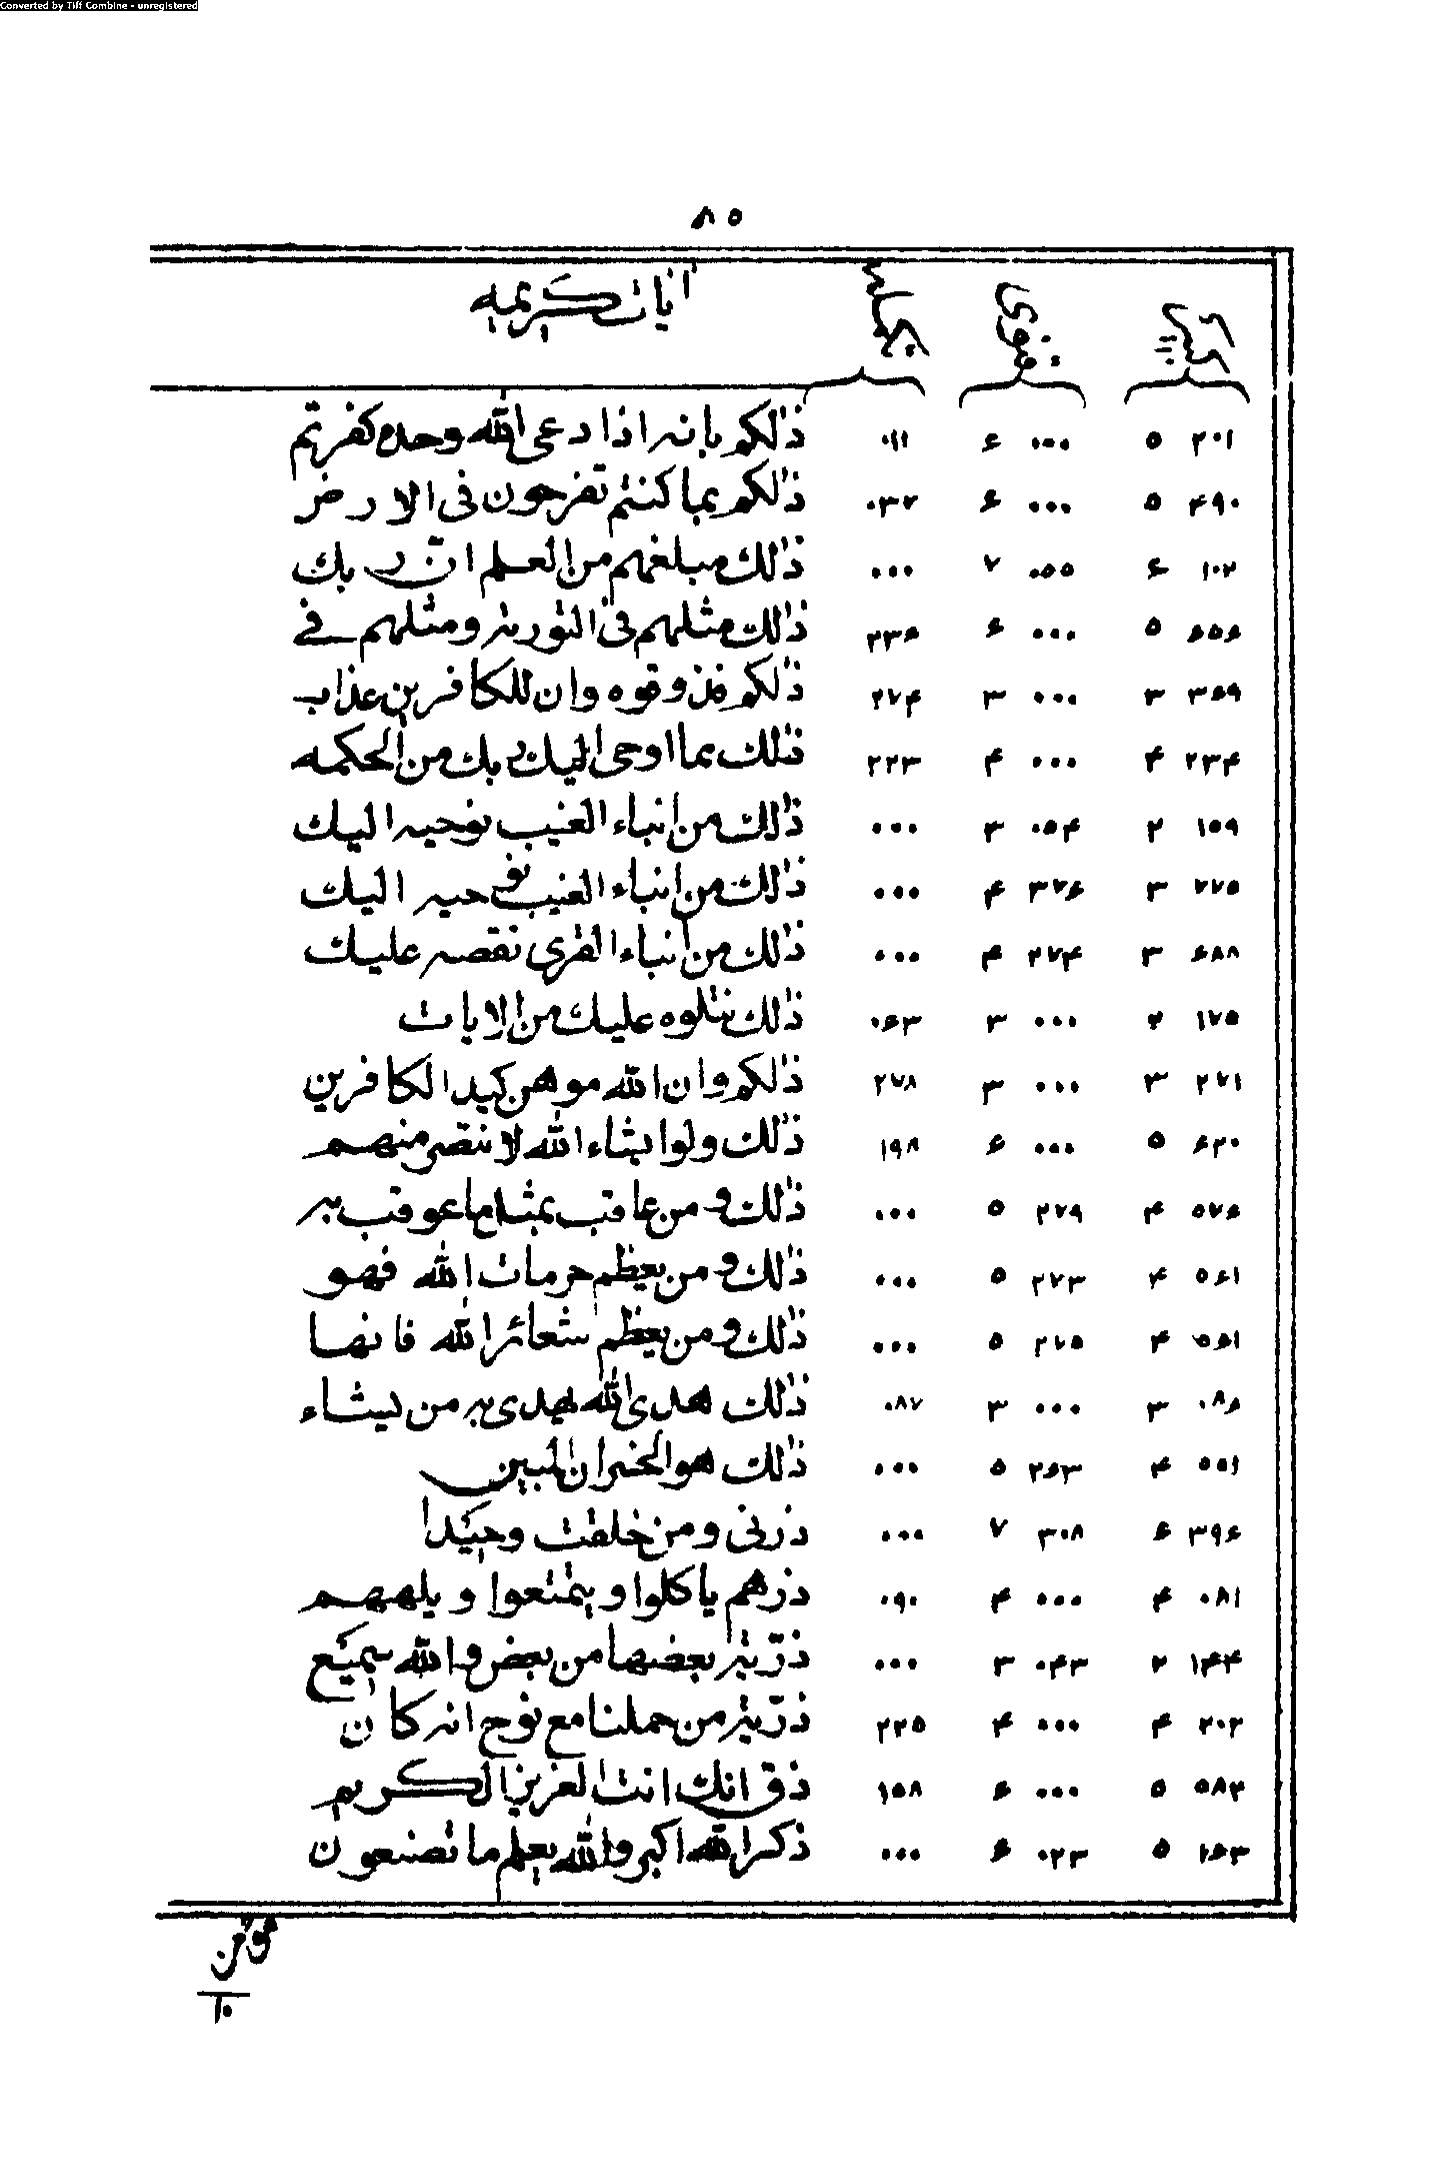 Converted by Tiff Combine - unregistered
۸۵
آیات کریمه
۲۰۱ ۵ ۰۰۰ ۶ ۰۱۱ ذلکم بانه اذا دعی الله وحده کفرتم
۴۹۰ ۵ ۰۰۰ ۶ ۰۳۷ ذلکم بما کنتم تفرحون فی الارض
۱۰۲ ۶ ۰۵۵ ۷ ۰۰۰ ذلک مبلغهم من العلم ان ربک
۶۵۶ ۵ ۰۰۰ ۶ ۲۳۶ ذلک مثلهم فی التوریة ومثلهم فی
۳۶۹ ۳ ۰۰۰ ۳ ۲۷۴ ذلکم فذوقوه وان للکافرین عذاب
۲۳۴ ۴ ۰۰۰ ۴ ۲۲۳ ذلک مما اوحی الیک ربک من الحکمه
۱۵۹ ۲ ۰۵۴ ۳ ۰۰۰ ذلک من انباء الغیب نوحیه الیک
۲۷۵ ۳ ۳۷۶ ۴ ۰۰۰ ذلک من انباء الغیب نوحیه الیک
۶۸۸ ۳ ۲۷۴ ۴ ۰۰۰ ذلک من انباء القری نقصه علیک
۱۷۵ ۲ ۰۰۰ ۳ ۰۶۳ ذلک نتلوه علیک من الایات
۲۷۱ ۳ ۰۰۰ ۳ ۲۷۸ ذلکم وان الله موهن کید الکافرین
۶۲۰ ۵ ۰۰۰ ۶ ۱۹۸ ذلک ولوا یشاء الله لانتصر منهم
۵۷۶ ۴ ۲۷۹ ۵ ۰۰۰ ذلک ومن عاقب بمثل ما عوقب به
۵۶۱ ۴ ۲۷۳ ۵ ۰۰۰ ذلک ومن یعظم حرمات الله فهو
۵۶۱ ۴ ۲۷۵ ۵ ۰۰۰ ذلک ومن یعظم شعائر الله فانها
۰۸۶ ۳ ۰۰۰ ۳ ۰۸۷ ذلک هدی الله یهدی به من یشاء
۵۵۱ ۴ ۲۶۳ ۵ ۰۰۰ ذلک هو الخسران المبین
۳۹۶ ۶ ۳۰۸ ۷ ۰۰۰ ذرنی ومن خلقت وحیدا
۰۸۱ ۴ ۰۰۰ ۴ ۰۹۰ ذرهم یاکلوا ویتمتعوا ویلههم
۱۴۴ ۲ ۰۴۳ ۳ ۰۰۰ ذرّیة بعضها من بعض والله سمیع
۲۰۲ ۴ ۰۰۰ ۴ ۲۲۵ ذرّیة من حملنا مع نوح انه کان
۵۸۲ ۵ ۰۰۰ ۶ ۱۵۸ ذق انک انت العزیز الکریم
۱۶۳ ۵ ۰۲۳ ۶ ۰۰۰ ذکر الله اکبر والله یعلم ما تصنعون